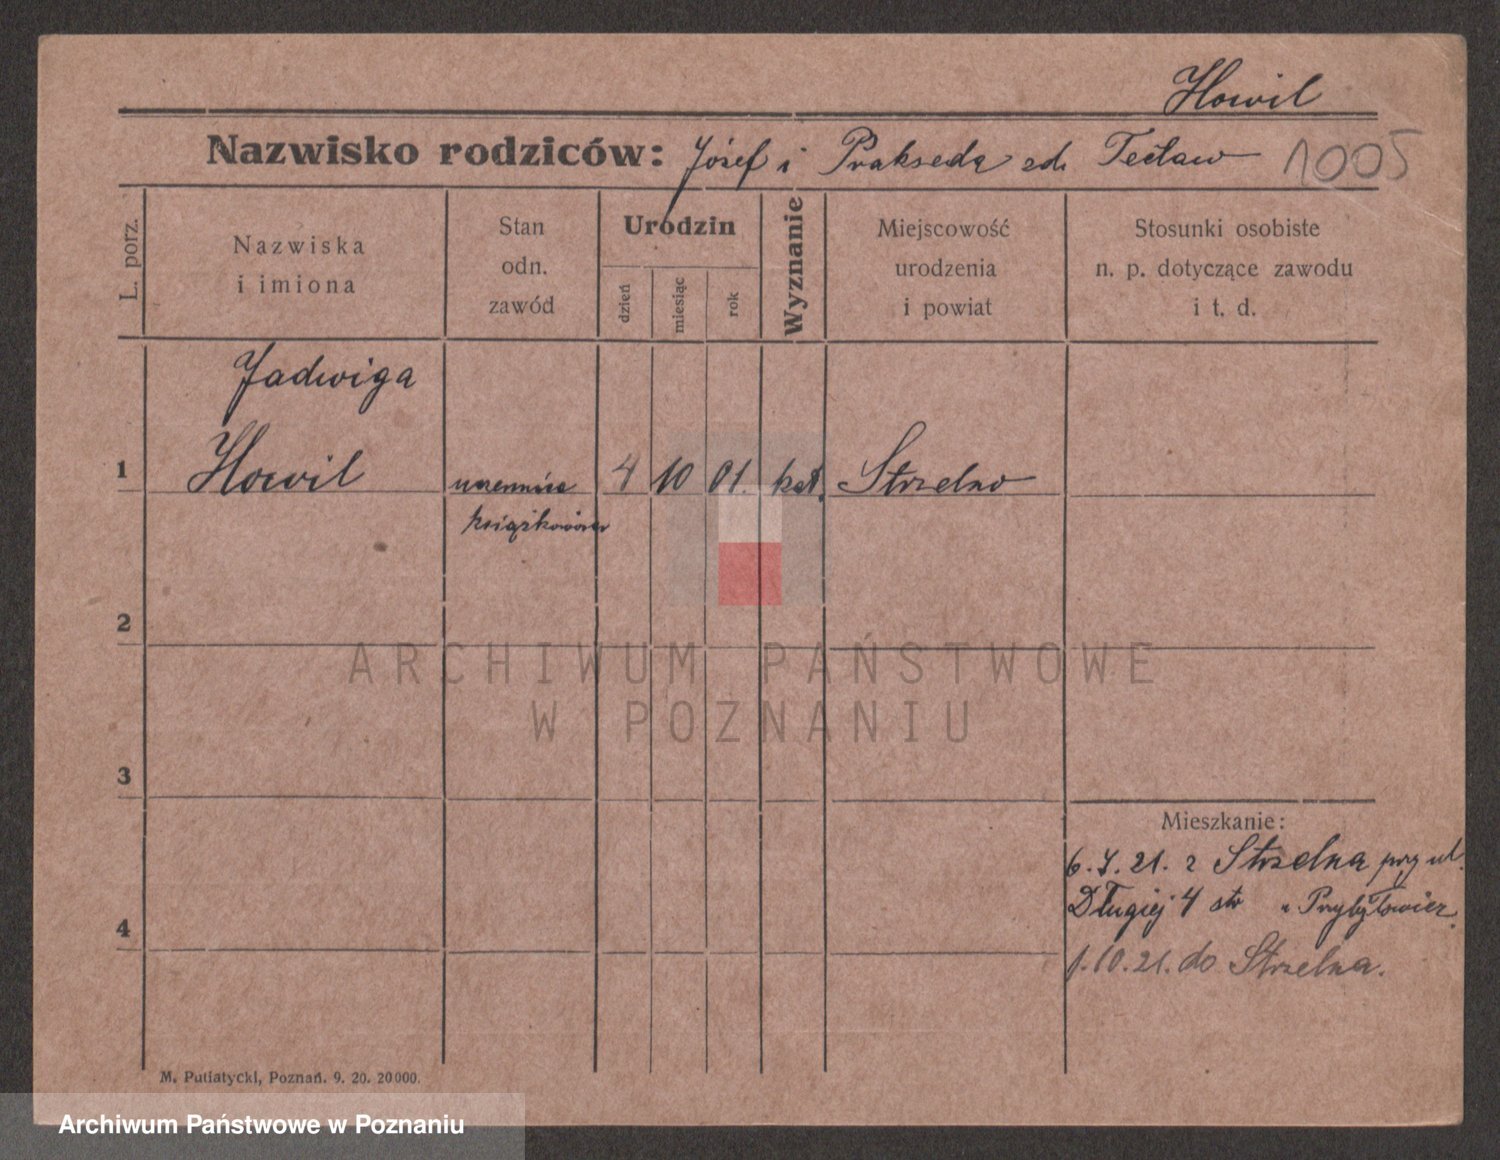 Howil
Nazwisko rodziców: Józef i Prakseda zd. Tecław 1005
L. porz.
Nazwiska
i imiona
Stan
odn.
zawód
Urodzin
dzień
miesiąc
rok
Wyznanie
Miejscowość
urodzenia
i powiat
Stosunki osobiste
n. p. dotyczące zawodu
i t. d.
Jadwiga
1 Howil uczennica 4 10 01. kat. Strzelno
2
ARCHIWUM PAŃSTWOWE
W POZNANIU
3
Mieszkanie:
6.7.21. z Strzelna przy ul.
4 Długiej 4 u
1.10.21. do Strzelna.
M. Putiatycki, Poznań. 9. 20. 20000.
Archiwum Państwowe w Poznaniu